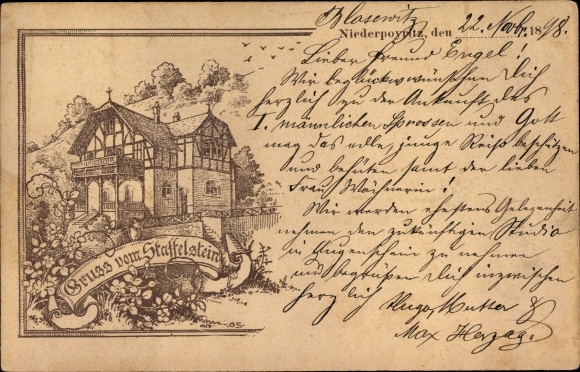 Blasewitz
Niederpoyritz, den 22. Novbr. 1898.
Lieber Freund Engel!
Wir beglückwünschen Dich
herzlich zu der Ankunft des
I. männlichen Sprossen und Gott
mag das edle, junge Reis beschützen
und behüten samt der lieben
Frau Wöchnerin!
Wir werden ehestens Gelegenheit
nehmen den zukünftigen Studio
in Augenschein zu nehmen
und begrüßen Dich inzwischen
herzlich Hugo, Mutter &
Max Herzog.
Gruss vom Staffelstein
OS